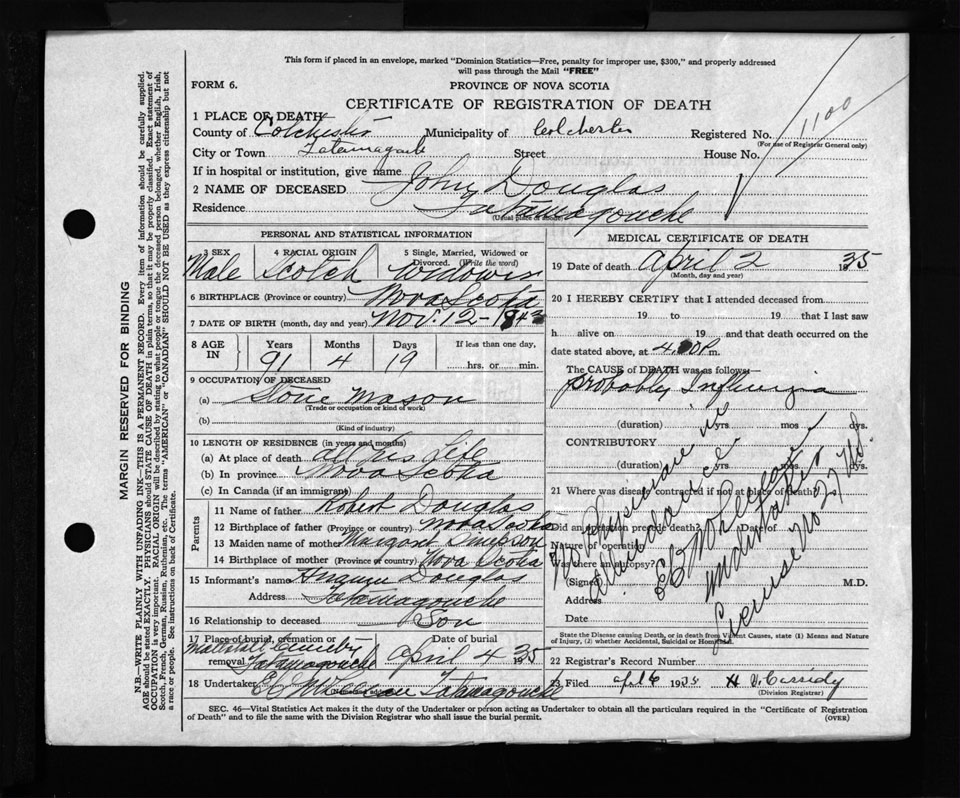 This form if placed in an envelope, marked "Dominion Statistics—Free, penalty for improper use, $300," and properly addressed
will pass through the Mail "FREE"
FORM 6.
PROVINCE OF NOVA SCOTIA
CERTIFICATE OF REGISTRATION OF DEATH
1 PLACE OF DEATH
County of Colchester Municipality of Colchester Registered No. 1100
(For use of Registrar General only)
City or Town Tatamagouche Street House No.
If in hospital or institution, give name
2 NAME OF DECEASED John Douglas
Residence Tatamagouche
(Usual place of abode)
PERSONAL AND STATISTICAL INFORMATION
3 SEX 4 RACIAL ORIGIN 5 Single, Married, Widowed or
Divorced. (Write the word)
Male Scotch Widower
6 BIRTHPLACE (Province or country) Nova Scotia
7 DATE OF BIRTH (month, day and year) Nov. 12 - 1843
8 AGE IN Years Months Days If less than one day,
91 4 19 hrs. or min.
9 OCCUPATION OF DECEASED
(a) Stone Mason
(Trade or occupation or kind of work)
(b)
(Kind of industry)
10 LENGTH OF RESIDENCE (in years and months)
(a) At place of death all his life
(b) In province Nova Scotia
(c) In Canada (if an immigrant)
Parents
11 Name of father Robert Douglas
12 Birthplace of father (Province or country) Nova Scotia
13 Maiden name of mother Margaret Simpson
14 Birthplace of mother (Province or country) Nova Scotia
15 Informant's name Douglas
Address Tatamagouche
16 Relationship to deceased Son
17 Place of burial, cremation or
removal Tatamagouche
Date of burial
April 4 1935
18 Undertaker Tatamagouche
MEDICAL CERTIFICATE OF DEATH
19 Date of death April 2 1935
(Month, day and year)
20 I HEREBY CERTIFY that I attended deceased from
19 to 19 that I last saw
h alive on 19 and that death occurred on the
date stated above, at 4. P m.
The CAUSE of DEATH was as follows—
probably Influenzia
(duration) yrs mos dys.
CONTRIBUTORY
(duration) yrs mos dys.
21 Where was disease contracted if not at place of death?
Did an operation precede death? Date of
Nature of operation
Was there an autopsy?
(Signed) M.D.
Address
Date
No Physician in
attendance
Undertaker
License No 27
State the Disease causing Death, or in death from Violent Causes, state (1) Means and Nature
of Injury, (2) whether Accidental, Suicidal or Homicidal.
22 Registrar's Record Number
23 Filed April 6 1935 Cassidy
(Division Registrar)
SEC. 46—Vital Statistics Act makes it the duty of the Undertaker or person acting as Undertaker to obtain all the particulars required in the "Certificate of Registration
of Death" and to file the same with the Division Registrar who shall issue the burial permit.
(OVER)
MARGIN RESERVED FOR BINDING
N.B.—WRITE PLAINLY WITH UNFADING INK—THIS IS A PERMANENT RECORD. Every item of information should be carefully supplied.
AGE should be stated EXACTLY. PHYSICIANS should STATE CAUSE OF DEATH in plain terms, so that it may be properly classified. Exact statement of
OCCUPATION is very important. RACIAL ORIGIN will be described by stating to what people or tongue the deceased person belonged, whether English, Irish,
Scotch, French, German, Russian, Ruthenian, etc. The terms "AMERICAN" or "CANADIAN" SHOULD NOT BE USED as they express citizenship but not
a race or people. See instructions on back of Certificate.